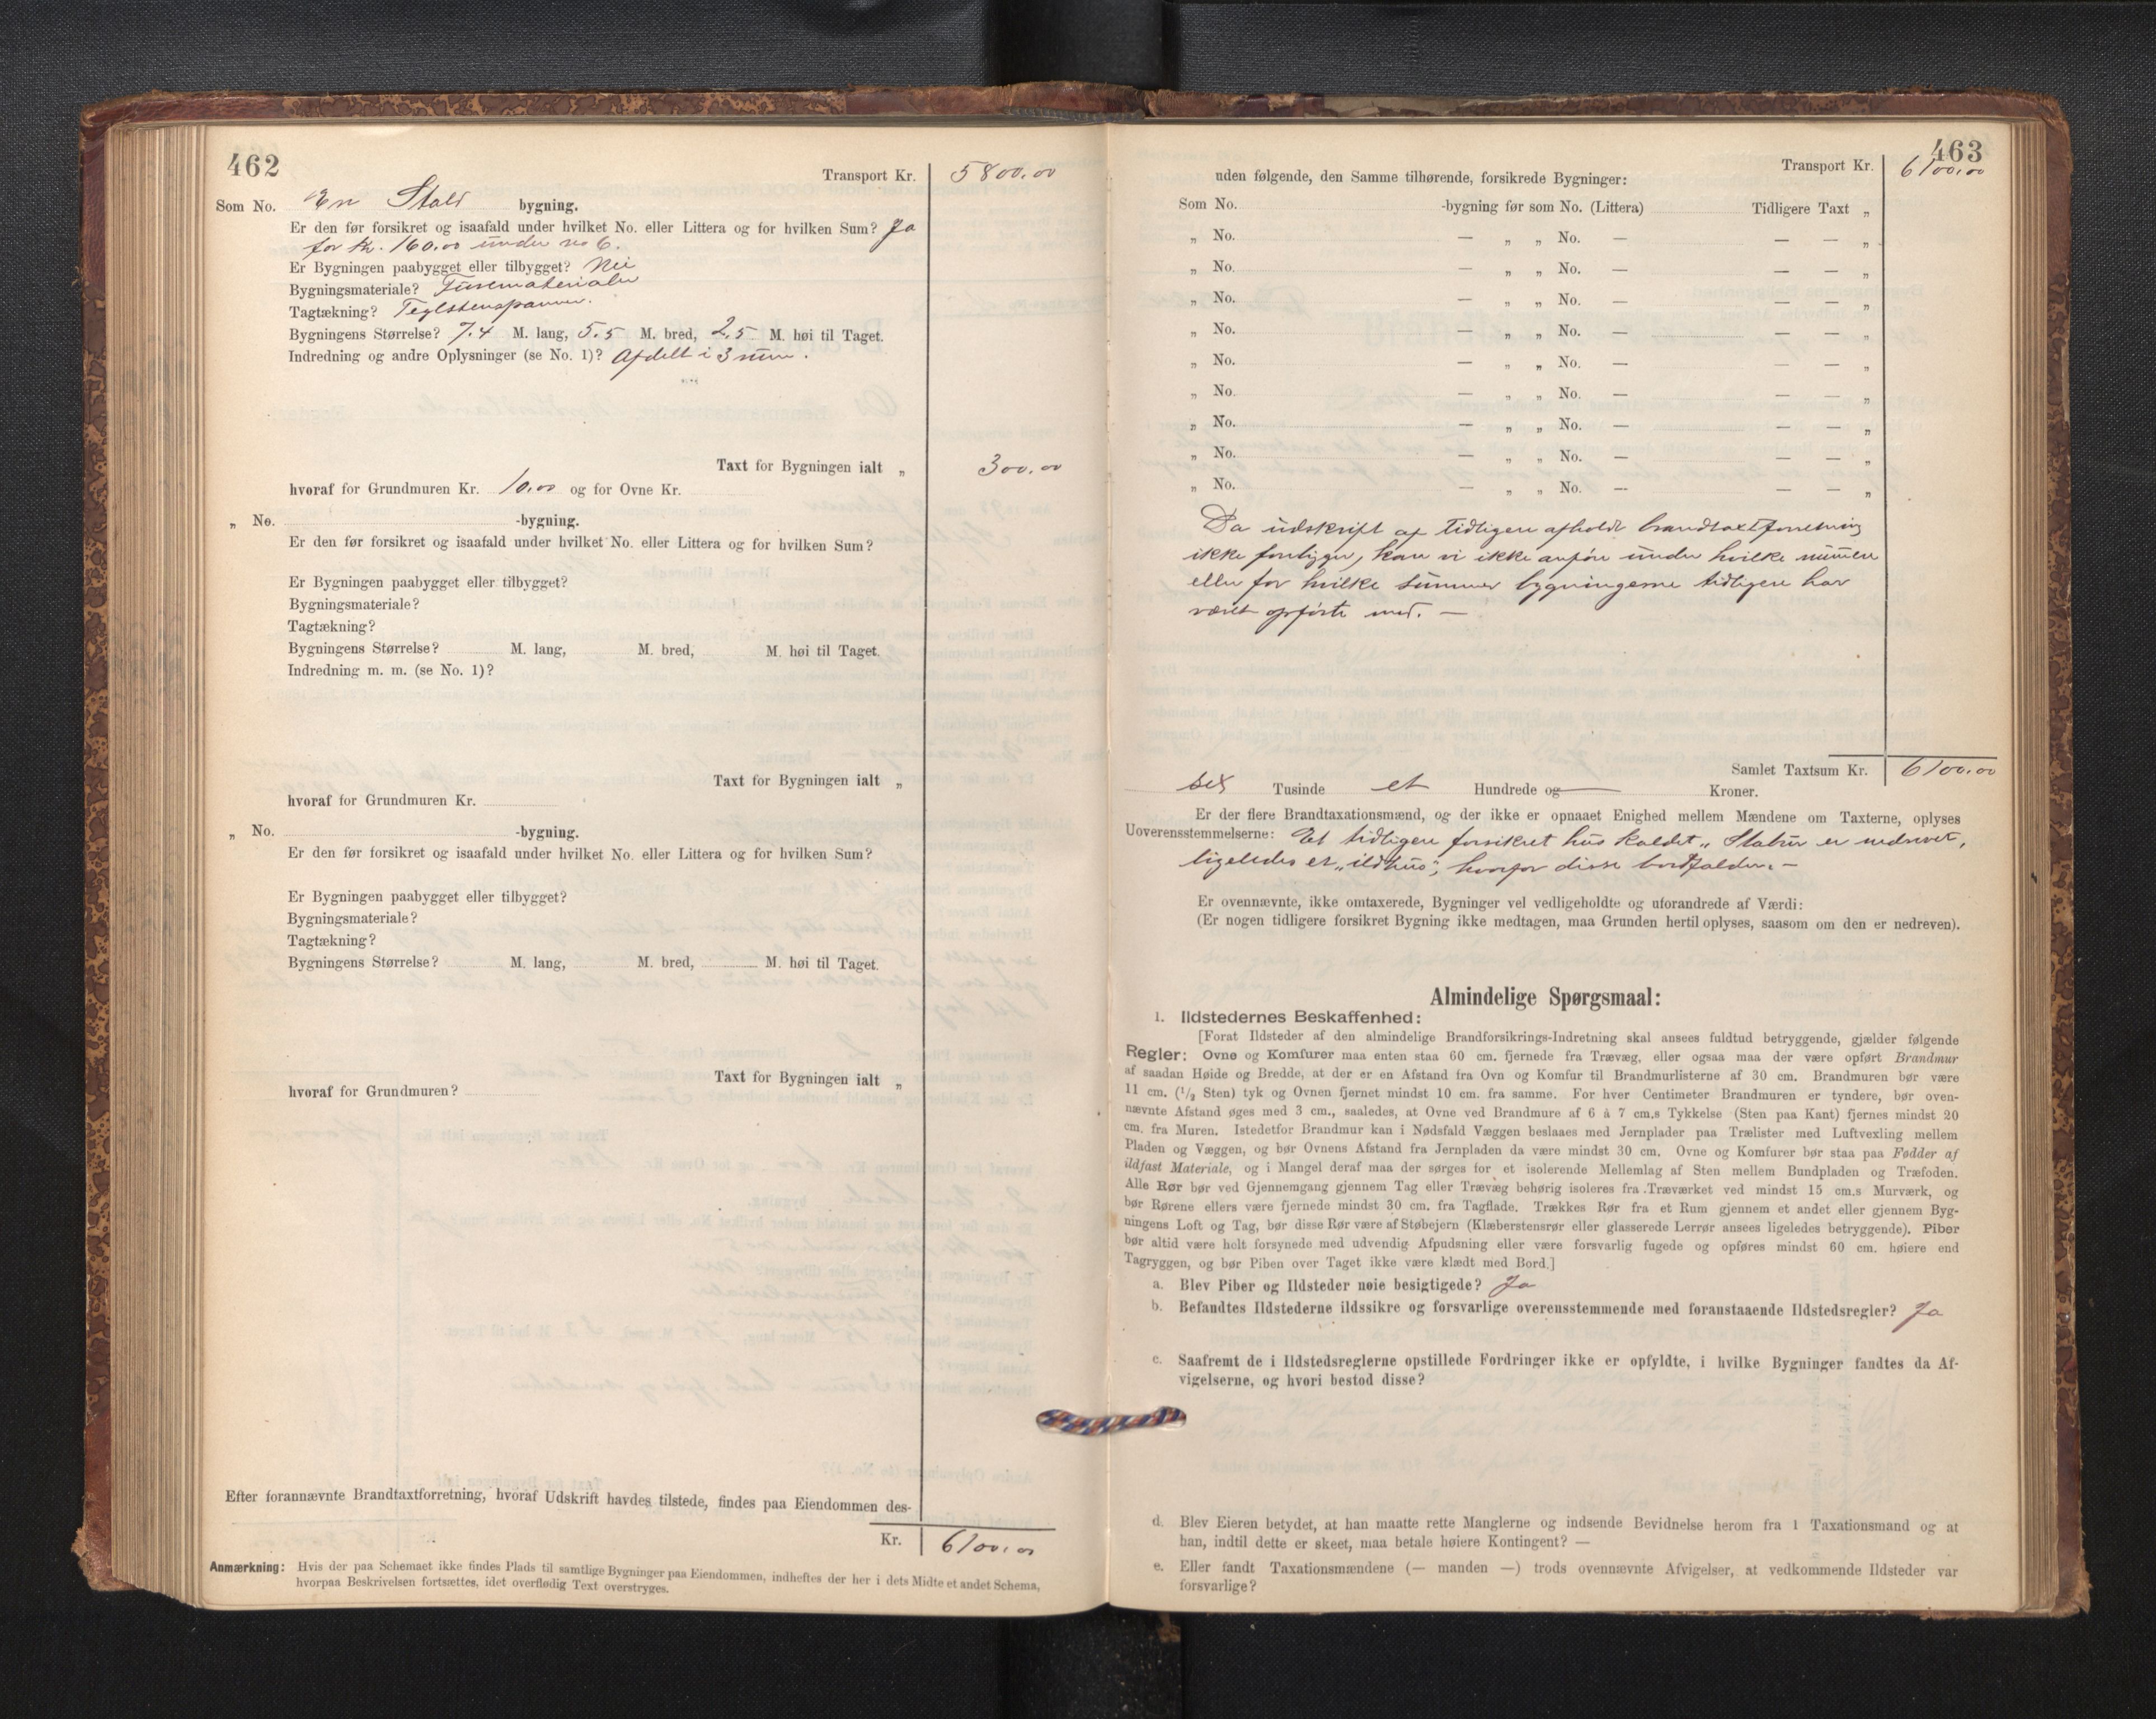 462
Transport Kr. 5800.00
Som No. En Stald bygning.
Er den før forsikret og isaafald under hvilket No. eller Littera og for hvilken Sum? Ja
for kr. 160.00 under no 6.
Er Bygningen paabygget eller tilbygget? Nei
Bygningsmateriale? Furumaterialer
Tagtækning? Teglstenspanner.
Bygningens Størrelse? 7.4 M. lang, 5.5 M. bred, 2.5 M. høi til Taget.
Indredning og andre Oplysninger (se No. 1)? Afdelt i 3 rum.
Taxt for Bygningen ialt „ 300.00
hvoraf for Grundmuren Kr. 10.00 og for Ovne Kr.
„ No. -bygning.
Er den før forsikret og isaafald under hvilket No. eller Littera og for hvilken Sum?
Er Bygningen paabygget eller tilbygget?
Bygningsmateriale?
Tagtækning?
Bygningens Størrelse? M. lang, M. bred, M. høi til Taget.
Indredning m. m. (se No. 1)?
Taxt for Bygningen ialt „
hvoraf for Grundmuren Kr.
„ No. -bygning.
Er den før forsikret og isaafald under hvilket No. eller Littera og for hvilken Sum?
Er Bygningen paabygget eller tilbygget?
Bygningsmateriale?
Tagtækning?
Bygningens Størrelse? M. lang, M. bred, M. høi til Taget.
Taxt for Bygningen ialt „
hvoraf for Grundmuren?
Efter forannævnte Brandtaxtforretning, hvoraf Udskrift havdes tilstede, findes paa Eiendommen des-
Kr. 6100.00
Anmærkning: Hvis der paa Schemaet ikke findes Plads til samtlige Bygninger paa Eiendommen, indheftes der her i dets Midte et andet Schema,
hvorpaa Beskrivelsen fortsættes, idet overflødig Text overstryges.
463
Transport Kr. 6100.00
uden følgende, den Samme tilhørende, forsikrede Bygninger:
Som No. -bygning før som No. (Littera) Tidligere Taxt „
„ No. — „ „ No. — — — „
„ No. — „ „ No. — — — „
„ No. — „ „ No. — — — „
„ No. — „ „ No. — — — „
„ No. — „ „ No. — — — „
„ No. — „ „ No. — — — „
„ No. — „ „ No. — — — „
„ No. — „ „ No. — — — „
„ No. — „ „ No. — — — „
Da udskrift af tidligere afholdt brandtaxtforretning
ikke foreligger, kan vi ikke anføre under hvilke numere
eller for hvilke summer bygningerne tidligere har
været opførte med. —
Samlet Taxtsum Kr. 6100.00
sex Tusinde et Hundrede og — Kroner.
Er der flere Brandtaxationsmænd, og der ikke er opnaaet Enighed mellem Mændene om Taxterne, oplyses
Uoverensstemmelserne: Et tidligere forsikret hus kaldet „Stabur er nedrevet,
ligeledes et „ildhus“, hvorfor disse bortfalder. —
Er ovennævnte, ikke omtaxerede, Bygninger vel vedligeholdte og uforandrede af Værdi:
(Er nogen tidligere forsikret Bygning ikke medtagen, maa Grunden hertil oplyses, saasom om den er nedreven).
Almindelige Spørgsmaal:
1. Ildstedernes Beskaffenhed:
[Forat Ildsteder af den almindelige Brandforsikrings-Indretning skal ansees fuldtud betryggende, gjælder følgende
Regler: Ovne og Komfurer maa enten staa 60 cm. fjernede fra Trævæg, eller ogsaa maa der være opført Brandmur
af saadan Høide og Bredde, at der er en Afstand fra Ovn og Komfur til Brandmurlisterne af 30 cm. Brandmuren bør være
11 cm. (1/2 Sten) tyk og Ovnen fjernet mindst 10 cm. fra samme. For hver Centimeter Brandmuren er tyndere, bør oven-
nævnte Afstand øges med 3 cm., saaledes, at Ovne ved Brandmure af 6 á 7 cm.s Tykkelse (Sten paa Kant) fjernes mindst 20
cm. fra Muren. Istedetfor Brandmur kan i Nødsfald Væggen beslaaes med Jernplader paa Trælister med Luftvexling mellem
Pladen og Væggen, og bør Ovnens Afstand fra Jernpladen da være mindst 30 cm. Ovne og Komfurer bør staa paa Fødder af
ildfast Materiale, og i Mangel deraf maa der sørges for et isolerende Mellemlag af Sten mellem Bundpladen og Træfoden.
Alle Rør bør ved Gjennemgang gjennem Tag eller Trævæg behørig isoleres fra Træværket ved mindst 15 cm.s Murværk, og
bør Rørene ellers være fjernede mindst 30 cm. fra Tagflade. Trækkes Rør fra et Rum gjennem et andet eller gjennem Byg-
ningens Loft og Tag, bør disse Rør være af Støbejern (Klæberstensrør eller glasserede Lerrør ansees ligeledes betryggende). Piber
bør altid være helt forsynede med udvendig Afpudsning eller være forsvarlig fugede og opføres mindst 60 cm. høiere end
Tagryggen, og bør Piben over Taget ikke være klædt med Bord.]
a. Blev Piber og Ildsteder nøie besigtigede? Ja
b. Befandtes Ildstederne ildssikre og forsvarlige overensstemmende med foranstaaende Ildstedsregler? Ja
c. Saafremt de i Ildstedsreglerne opstillede Fordringer ikke er opfyldte, i hvilke Bygninger fandtes da Af-
vigelserne, og hvori bestod disse?
d. Blev Eieren betydet, at han maatte rette Manglerne og indsende Bevidnelse herom fra 1 Taxationsmand og at
han, indtil dette er skeet, maa betale høiere Kontingent? —
e. Eller fandt Taxationsmændene (— manden —) trods ovennævnte Afvigelser, at vedkommende Ildsteder var
forsvarlige?